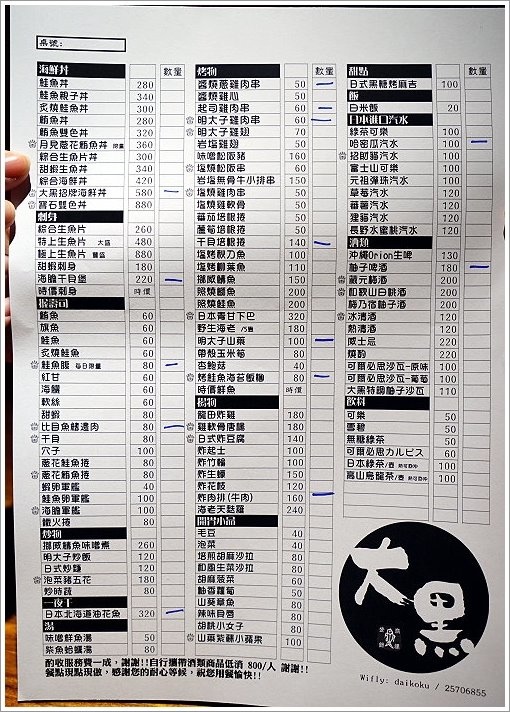 桌號:
海鮮丼 數量
鮭魚丼 280
鮭魚親子丼 340
炙燒鮭魚丼 300
鮪魚丼 280
鮪魚雙色丼 320
月見蔥花鮪魚丼 限量 360
綜合生魚片丼 300
甜蝦生魚丼 340
綜合海鮮丼 420
大黑招牌海鮮丼 580
寶石雙色丼 880
刺身
綜合生魚片 260
特上生魚片 大盛 480
極上生魚片 豐盛 880
甜蝦刺身 180
海膽干貝堡 220
時價刺身 時價
握壽司
鮪魚 60
旗魚 60
鮭魚 60
炙燒鮭魚 60
鮭魚腹 每日限量 80
紅甘 60
海鱺 60
軟絲 60
甜蝦 60
比目魚鰭邊肉 80
干貝 80
穴子 100
蔥花鮭魚捲 80
蔥花鮪魚捲 100
蝦卵軍艦 40
鮭魚卵軍艦 100
海膽軍艦 100
懺火捲 80
炒物
挪威鯖魚味噌煮 260
明太子炒飯 120
日式炒麵 120
泡菜豬五花 180
炒時蔬 80
一夜干
日本北海道油花魚 320
湯
味噌鮮魚湯 50
紫魚蛤蠣湯 80
烤物 數量
醬燒蔥雞肉串 50
醬燒雞心 50
起司雞肉串 60
明太子雞肉串 60
明太子雞翅 70
岩塩雞翅 60
味噌松阪豬 160
塩燒松阪串 60
岩塩無骨牛小排串 150
塩燒雞肉串 50
塩燒雞軟骨 50
番茄培根捲 50
蘆筍培根捲 50
干貝培根捲 140
塩烤秋刀魚 100
塩烤柳葉魚 110
挪威鯖魚 150
照燒鯛魚 150
照燒鮭魚 200
日本青甘下巴 320
野生海老 /5隻 180
明太子山藥 100
帶殼玉米筍 80
杏鮑菇 40
烤鮭魚海苔飯糰 80
時價鮮魚 時價
揚物
龍田炸雞 180
雞軟骨唐揚 180
日式炸豆腐 140
炸起士 100
炸竹輪 100
炸生蠔 150
炸花枝 120
炸肉排(牛肉) 160
海老天麩羅 240
開胃小品
毛豆 40
泡菜 40
焙煎胡麻沙拉 80
和風生菜沙拉 80
胡麻菠菜 60
柚香蘿蔔 50
山葵章魚 50
辣味貝唇 50
胡桃小女子 80
山藥紫蘇小蘋果 100
甜點 數量
日式黑糖烤麻吉 100
飯
白米飯 20
日本進口汽水
綠茶可樂 100
哈密瓜汽水 100
招財貓汽水 100
富士山可樂 100
元祖彈珠汽水 100
草莓汽水 120
蕃薯汽水 120
狸貓汽水 120
長野水蜜桃汽水 120
酒類
沖繩Orion生啤 130
柚子啤酒 180
蔵元梅酒 200
和歌山白桃酒 200
梅乃宿柚子酒 200
冰清酒 120
熱清酒 120
威士忌 220
燒酌 220
可爾必思沙瓦-原味 100
可爾必思沙瓦-葡萄 100
大黑特調柚子沙瓦 110
飲料
可樂 50
雪碧 50
無糖綠茶 50
可爾必思カルピス 60
日本綠茶/壺 熱可回沖 100
高山烏龍茶/壺 熱可回沖 100
大黑
酌收服務費一成，謝謝!!自行攜帶酒類商品低消 800/人 謝謝!!
餐點現點現做，感謝您的耐心等候，祝您用餐愉快!!
Wifly: daikoku / 25706855